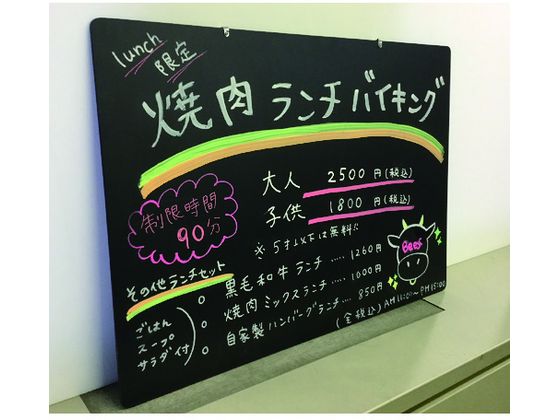 lunch
限定
焼肉ランチバイキング
大人 2500円(税込)
子供 1800円(税込)
※5才以下は無料!!
制限時間
90分
Beef
その他ランチセット
○黒毛和牛ランチ.....1260円
○焼肉ミックスランチ....1000円
○自家製ハンバーグランチ...850円
ごはん
スープ
サラダ付
(全税込) AM11:00~PM15:00